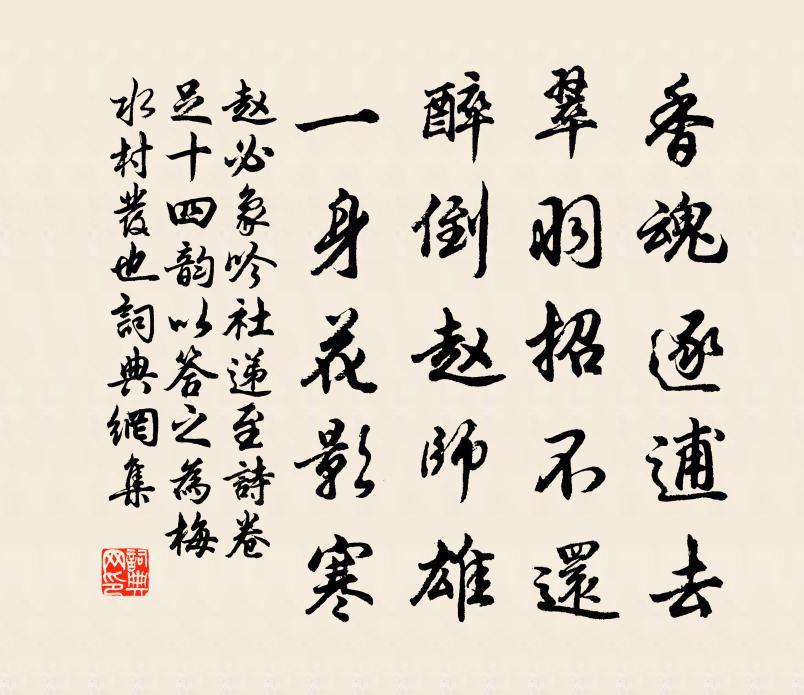 香魂逐逋去
翠羽招不還
醉倒赵師雄
一身花影寒
赵必象吟社递至詩卷
足十四韵以答之為梅
水村發也詞典網集
詞典
网印